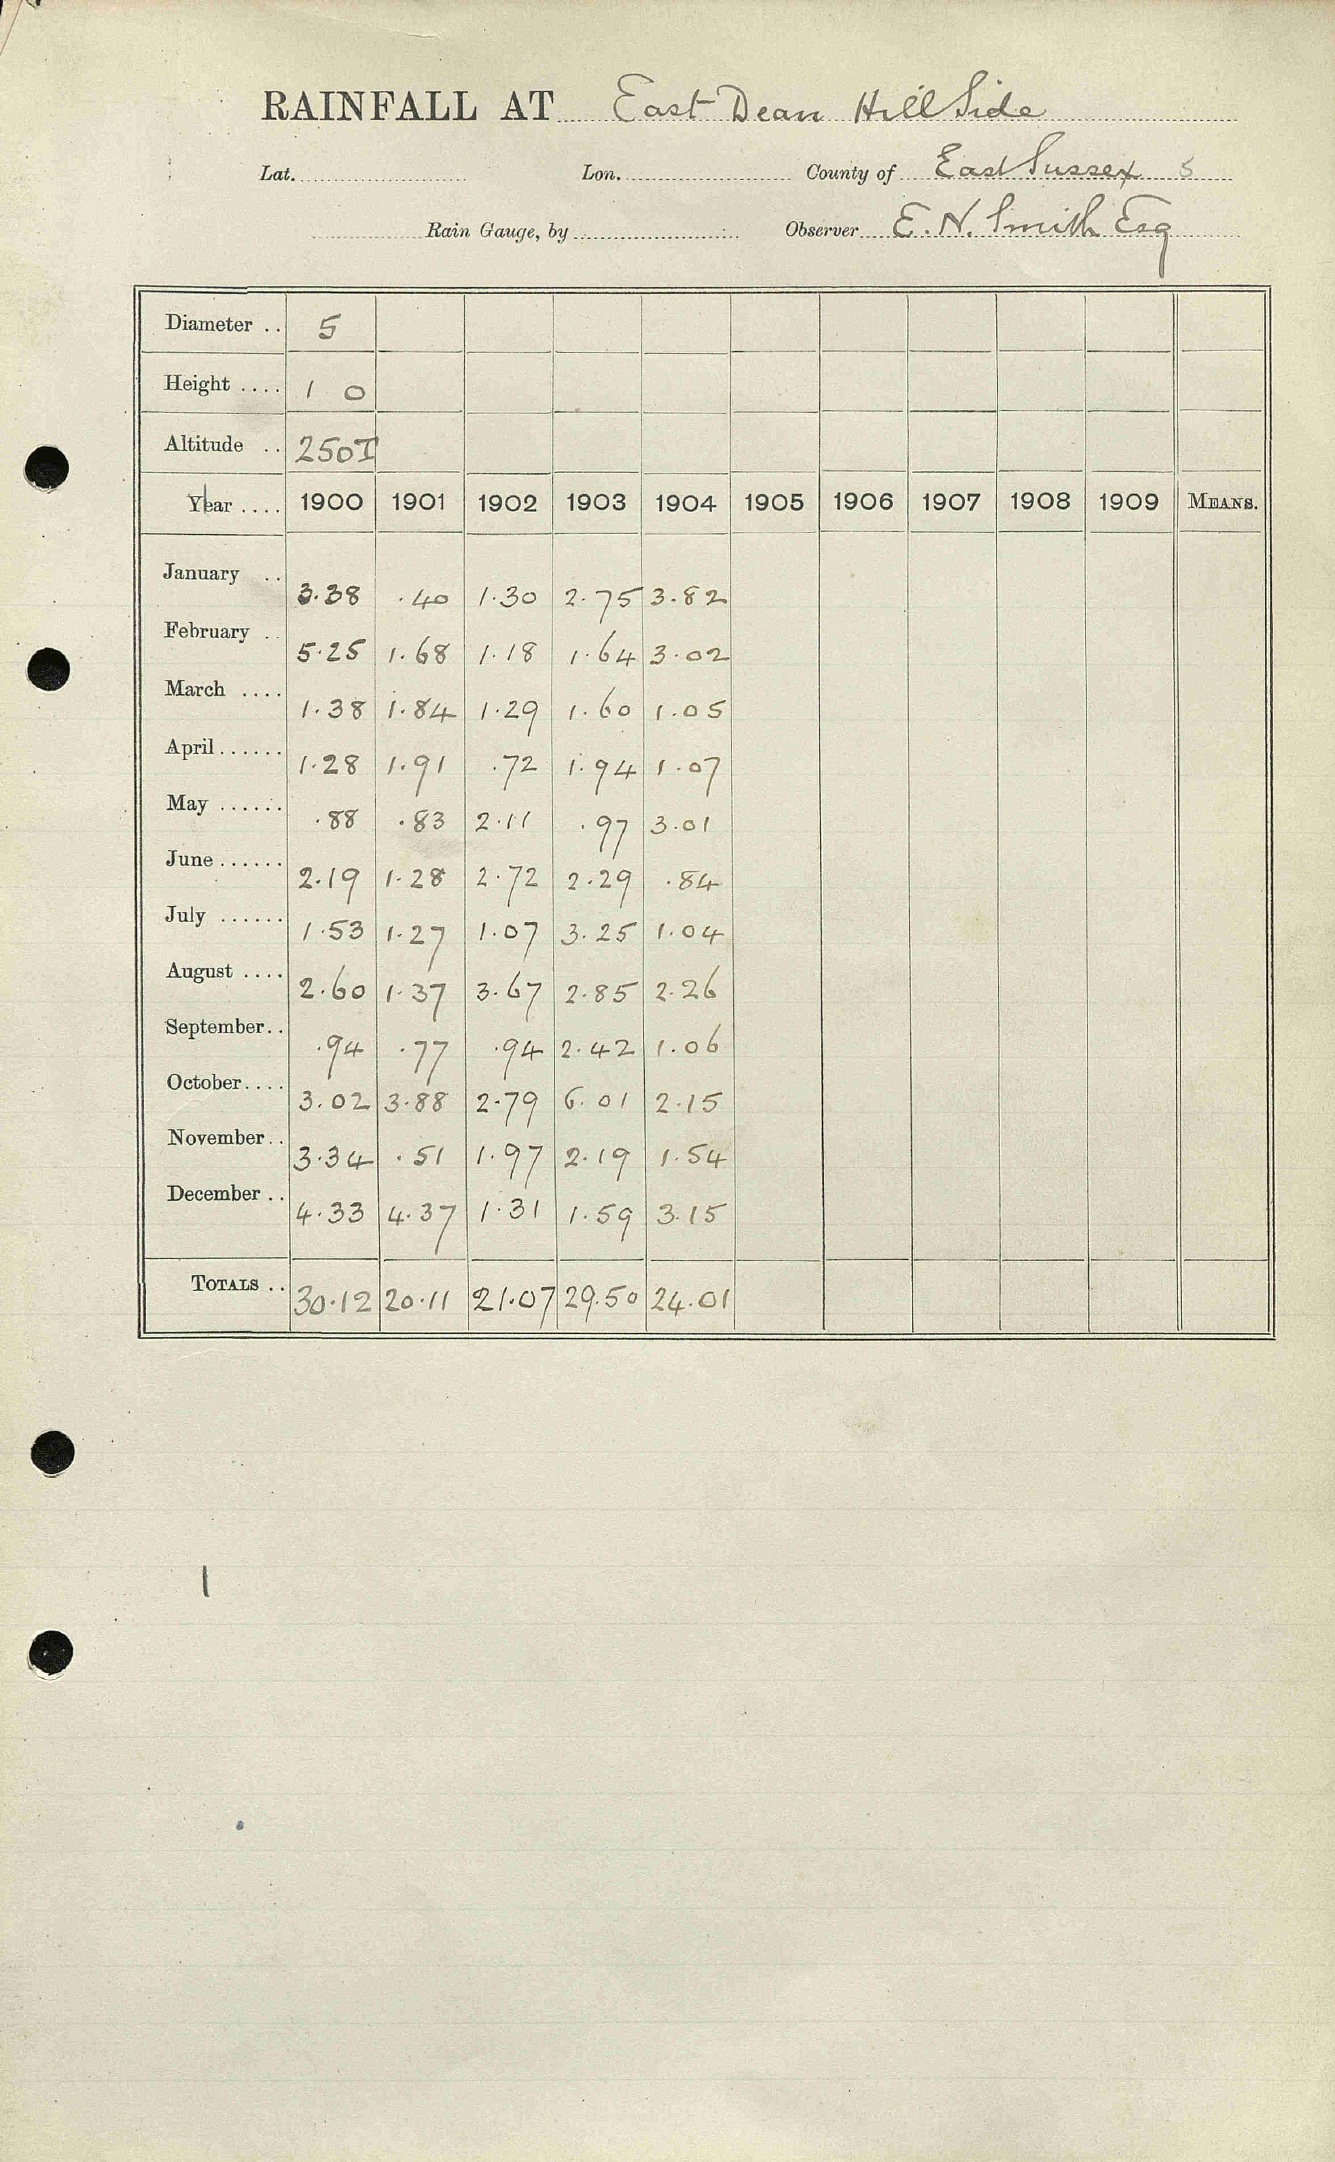 RAINFALL AT East Dean Hill Side
Lat. Lon. County of East Sussex 5
Rain Gauge, by Observer E. N. Smith Esq
Diameter .. 5
Height .... 1 0
Altitude .. 250T
Year .... 1900 1901 1902 1903 1904 1905 1906 1907 1908 1909 MEANS.
January .. 3.38 .40 1.30 2.75 3.82
February .. 5.25 1.68 1.18 1.64 3.02
March .... 1.38 1.84 1.29 1.60 1.05
April ...... 1.28 1.91 .72 1.94 1.07
May ...... .88 .83 2.11 .97 3.01
June ...... 2.19 1.28 2.72 2.29 .84
July ...... 1.53 1.27 1.07 3.25 1.04
August .... 2.60 1.37 3.67 2.85 2.26
September.. .94 .77 .94 2.42 1.06
October.... 3.02 3.88 2.79 6.01 2.15
November.. 3.34 .51 1.97 2.19 1.54
December .. 4.33 4.37 1.31 1.59 3.15
TOTALS .. 30.12 20.11 21.07 29.50 24.01